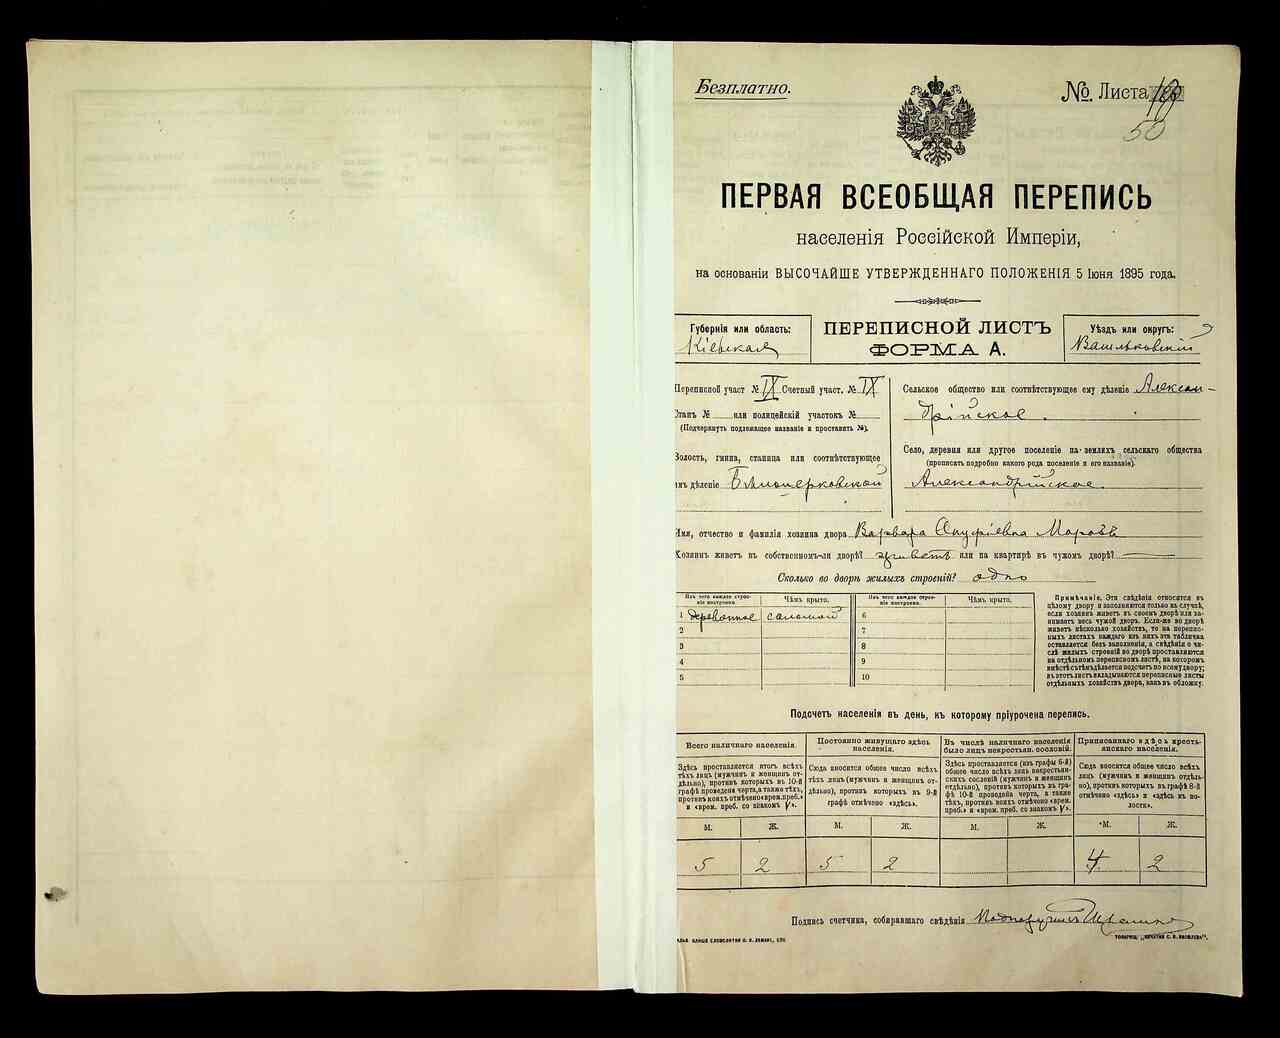 Безплатно.
№. Листа
50
ПЕРВАЯ ВСЕОБЩАЯ ПЕРЕПИСЬ
населенія Россійской Имперіи,
на основаніи ВЫСОЧАЙШЕ УТВЕРЖДЕННАГО ПОЛОЖЕНІЯ 5 Іюня 1895 года.
Губернія или область:
Кіевская
ПЕРЕПИСНОЙ ЛИСТЪ
ФОРМА А.
Уѣздъ или округъ:
Васильковскій
Переписной участ № IX Счетный участ. № IX
Станъ № или полицейскій участокъ №
(Подчеркнуть подлежащее названіе и проставить №).
Волость, гмина, станица или соотвѣтствующее
имъ дѣленіе Бѣлоцерковской
Сельское общество или соотвѣтствующее ему дѣленіе Алексан-
дрійское.
Село, деревня или другое поселеніе на земляхъ сельскаго общества
(прописать подробно какого рода поселеніе и его названіе).
Александрійское.
Имя, отчество и фамилія хозяина двора Варвара Онуфріевна Морозъ
Хозяинъ живетъ въ собственномъ-ли дворѣ? живетъ или на квартирѣ въ чужомъ дворѣ?
Сколько во дворѣ жилыхъ строеній? одно
Изъ чего каждое строе-
ніе построено.
Чѣмъ крыто.
Изъ чего каждое строе-
ніе построено.
Чѣмъ крыто.
1 деревянное соломой 6
2 7
3 8
4 9
5 10
Примѣчаніе. Эти свѣдѣнія относятся къ
цѣлому двору и заполняются только на случаѣ,
если хозяинъ живетъ въ своемъ дворѣ или за-
нимаетъ весь чужой дворъ. Если-же во дворѣ
живетъ нѣсколько хозяйствъ, то на перепис-
ныхъ листахъ каждаго изъ нихъ эта табличка
оставляется безъ заполненія, а свѣдѣнія о чи-
слѣ жилыхъ строеній во дворѣ проставляются
на отдѣльномъ переписномъ листѣ, на которомъ
вмѣстѣ съ тѣмъ дѣлается подсчетъ по всему двору;
въ этотъ листъ вкладываются переписные листы
отдѣльныхъ хозяйствъ двора, какъ въ обложку.
Подсчетъ населенія въ день, къ которому пріурочена перепись.
Всего наличнаго населенія.
Постоянно живущаго здѣсь
населенія.
Въ числѣ наличнаго населенія
было лицъ некрестьян. сословій.
Приписаннаго здѣсь кресть-
янскаго населенія.
Здѣсь проставляется итогъ всѣхъ
тѣхъ лицъ (мужчинъ и женщинъ от-
дѣльно), противъ которыхъ въ 10-й
графѣ проведена черта, а также тѣхъ,
противъ коихъ отмѣчено «врем. преб.»
и «врем. преб. со знакомъ V».
Сюда вносится общее число всѣхъ
тѣхъ лицъ (мужчинъ и женщинъ от-
дѣльно), противъ которыхъ въ 9-й
графѣ отмѣчено «здѣсь».
Здѣсь проставляется (изъ графы 6-й)
общее число всѣхъ лицъ некрестьян-
скихъ сословій (мужчинъ и женщинъ
отдѣльно), противъ которыхъ въ гра-
фѣ 10-й проведена черта, а также
тѣхъ, противъ коихъ отмѣчено «врем.
преб.» и «врем. преб. со знакомъ V».
Сюда вносится общее число всѣхъ
лицъ (мужчинъ и женщинъ отдѣль-
но), противъ которыхъ въ графѣ 8-й
отмѣчено «здѣсь» и «здѣсь въ во-
лости».
М. Ж. М. Ж. М. Ж. М. Ж.
5 2 5 2 4 2
Подпись счетчика, собиравшаго свѣдѣнія